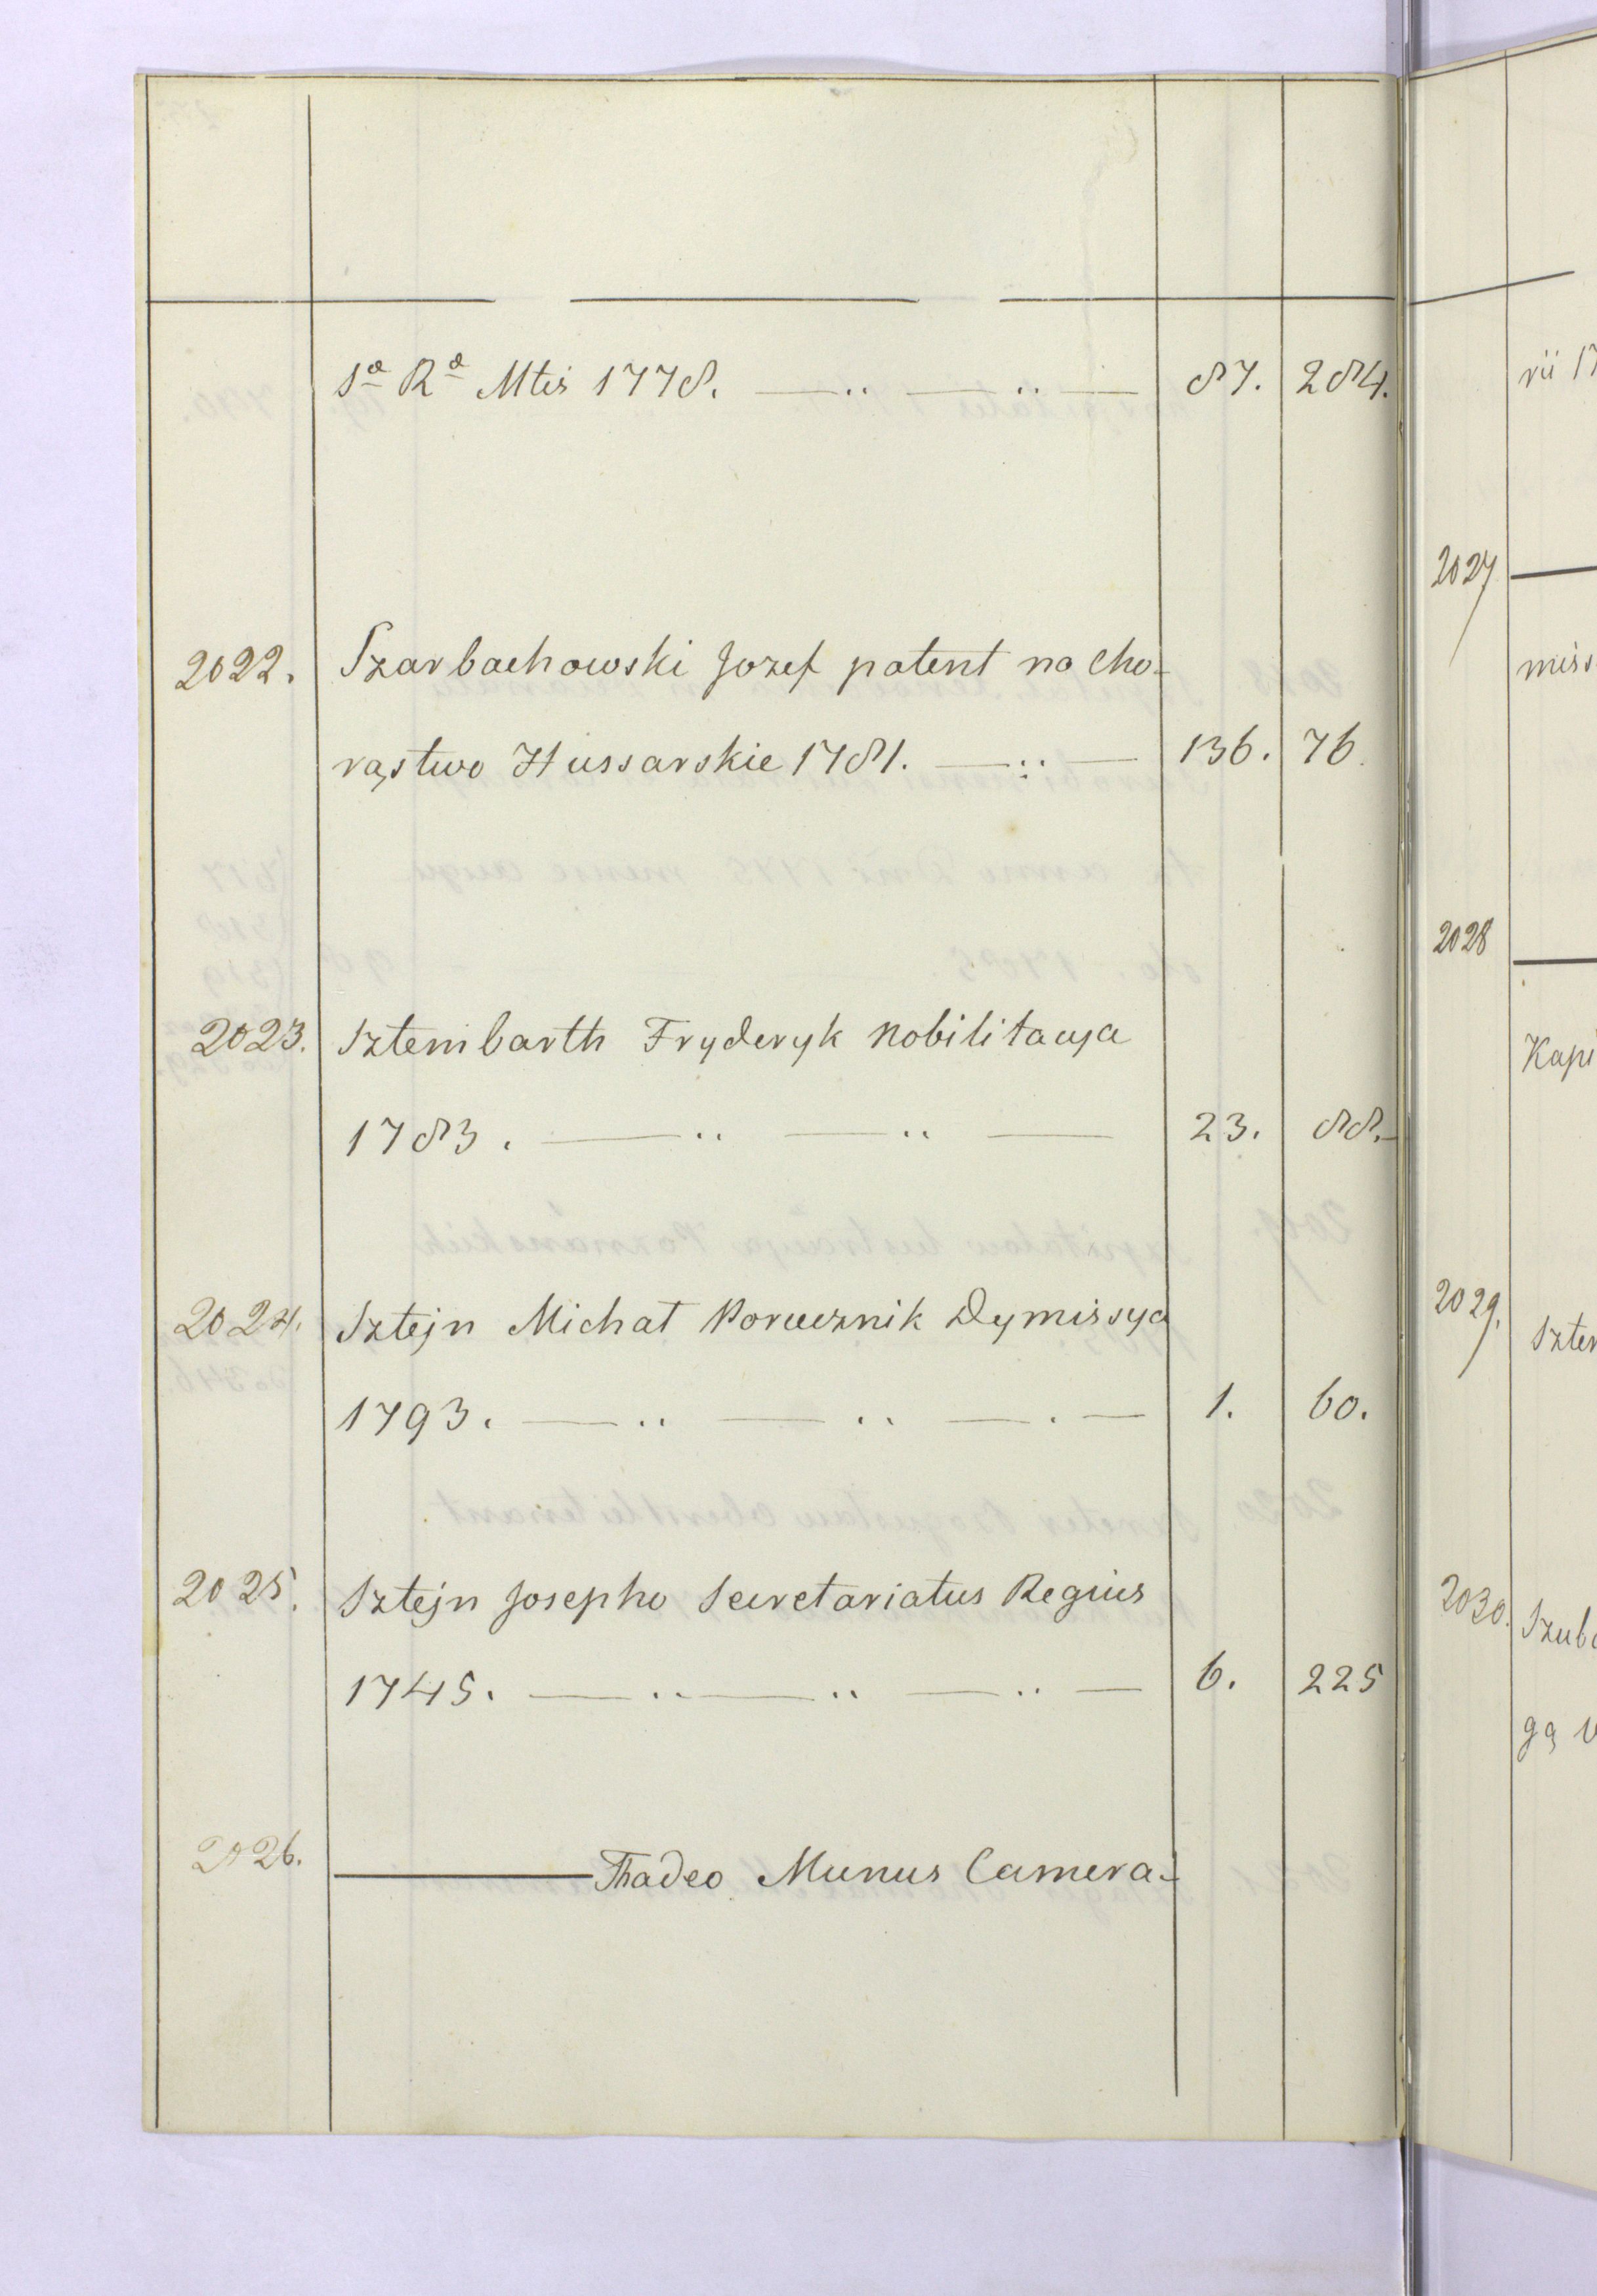 Sª Rª Mtis 1778. 87. 284.
2022. Szarbachowski Jozef patent na Cho-
rąstwo Hussarskie 1781. 136. 76.
2023. Sztembarth Fryderyk Nobilitacya
1783. 23. 88.
2024. Sztejn Michał Porucznik Dymissya
1793. 1. 60.
2025. Sztejn Josepho Secretariatus Regius
1745. 6. 225
2026. Thadeo Munus Camera-
rii 17
2027
miss
2028
Kapi
2029.
Szte
2030. Szub
gą